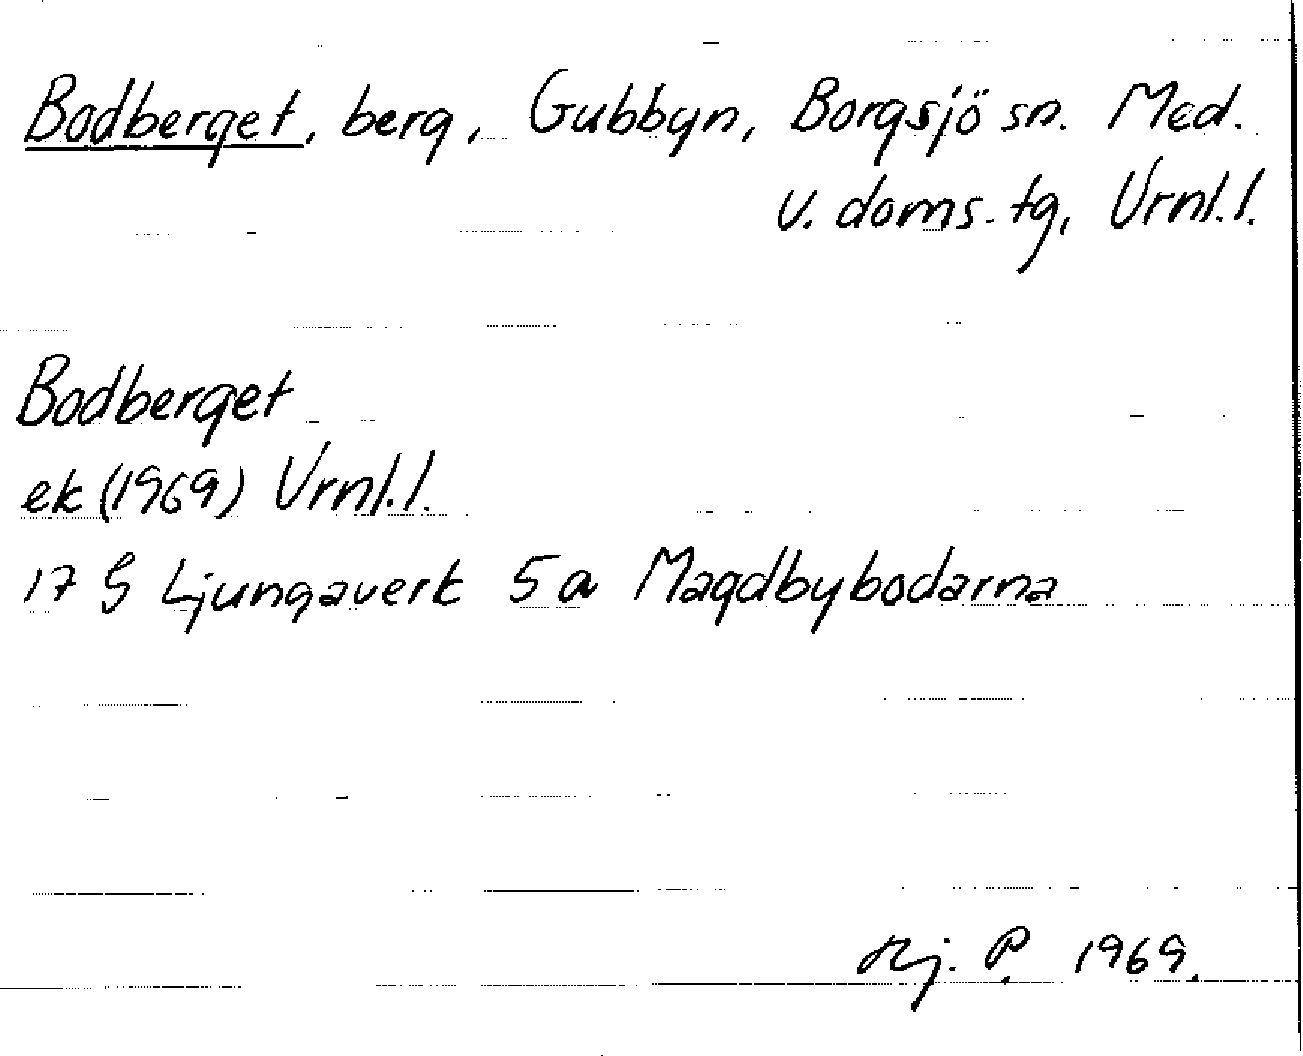 Bodberget, berg, Gubbyn, Borgsjö sn. Med.
v. doms. tg, Vrnl.l.
Bodberget
ek (1969) Vrnl.l.
17 G Ljungaverk 5 a Magdbybodarna
Hj. P. 1969.